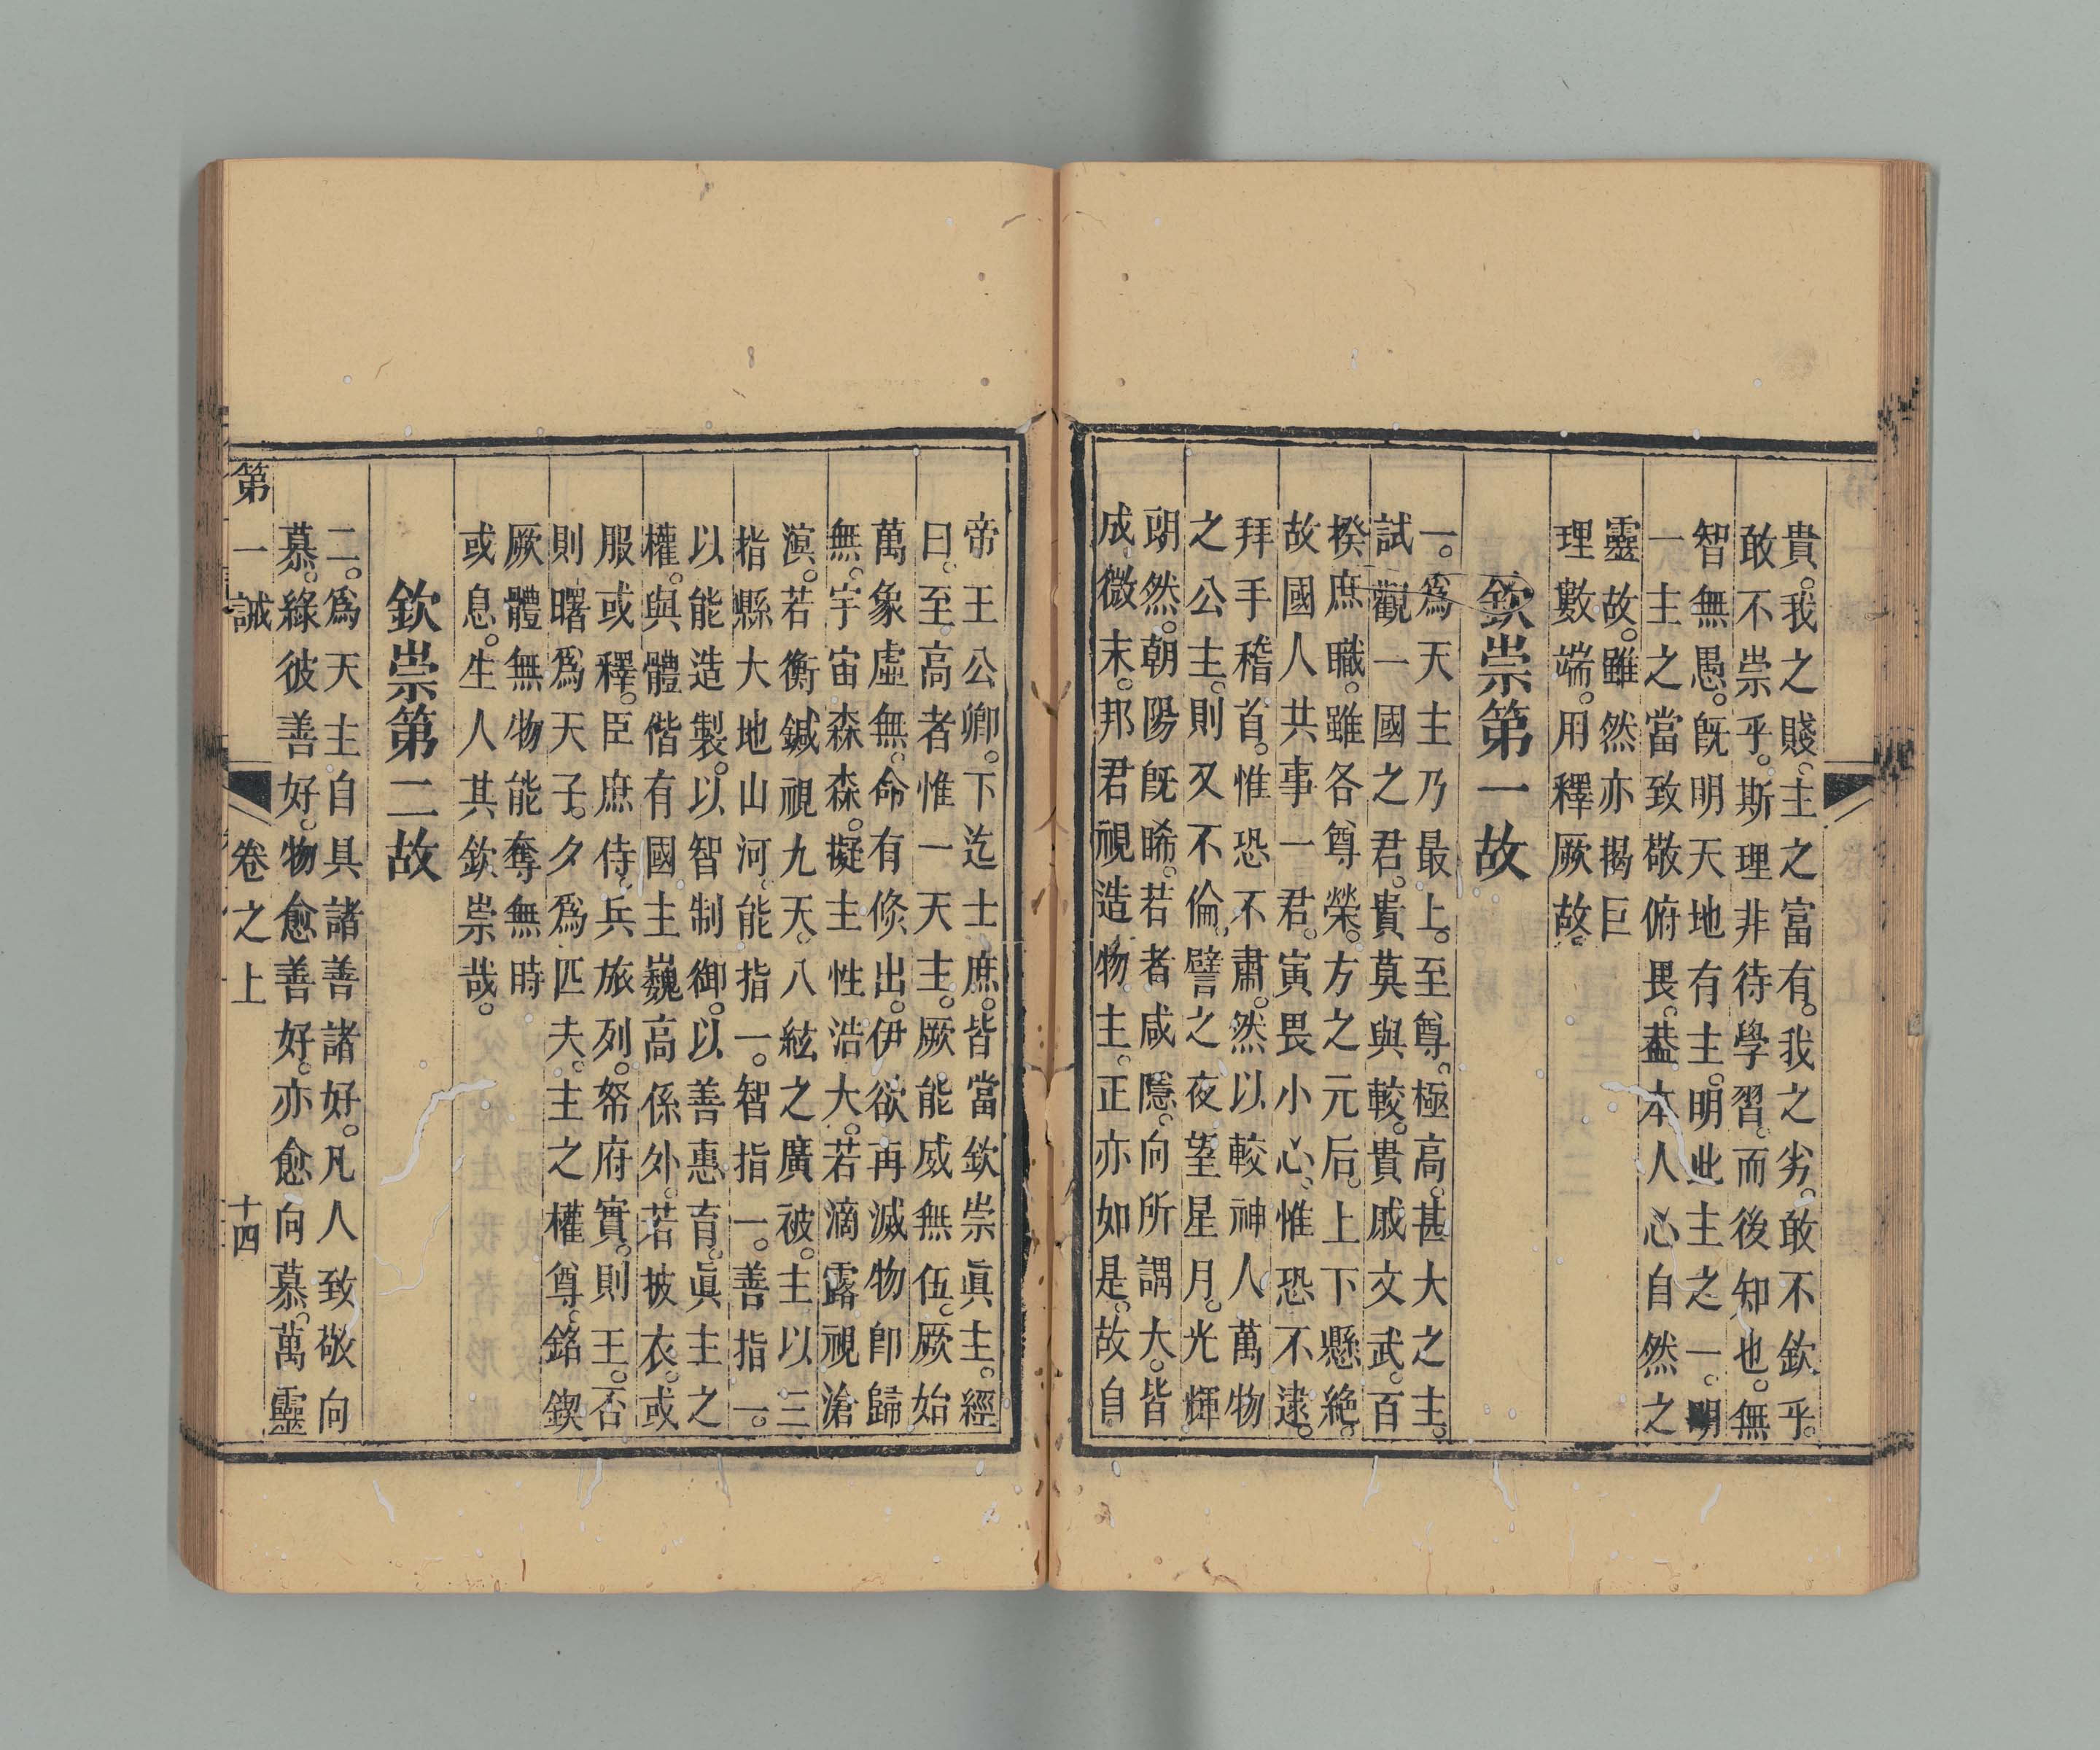 貴。我之賤。主之富有。我之劣。敢不欽乎。
敢不崇乎。斯理非待學習。而後知也。無
智無愚。旣明天地有主。明此主之一。明
一主之當致敬俯畏。葢本人心自然之
靈故。雖然亦揭巨
理數端。用釋厥故。
欽崇第一故
一。爲天主乃最上。至尊。極高。甚大之主。
試觀一國之君。貴莫與較。貴戚文武。百
揆庶職。雖各尊榮。方之元后。上下懸絶。
故國人共事一君。寅畏小心。惟恐不逮。
拜手稽首。惟恐不肅。然以較神人萬物
之公主。則又不倫。譬之夜望星月。光輝
朗然。朝陽旣晞。若者咸隱。向所謂大。皆
成微末。邦君視造物主。正亦如是。故自
帝王公卿。下迄士庶。皆當欽崇眞主。經
曰。至高者惟一天主。厥能威無伍。厥始
萬象虛無。命有條出。伊欲再滅物卽歸
無。宇宙森森。擬主性浩大。若滴露視滄
溟。若衡鍼視九天。八絃之廣被。主以三
指縣大地山河。能指一。智指一。善指一。
以能造製。以智制御。以善惠育。眞主之
權。與體偕有國主巍高係外。若披衣。或
服或釋。臣庶侍。兵旅列。帑府實。則王。否
則曙爲天子。夕爲匹夫。主之權尊。銘鍥
厥體無物能奪無時
或息。生人其欽崇哉。
欽崇第二故
二。爲天主自具諸善諸好。凡人致敬向
慕。緣彼善好。物愈善好。亦愈向慕。萬靈
第一誡 卷之上 十四